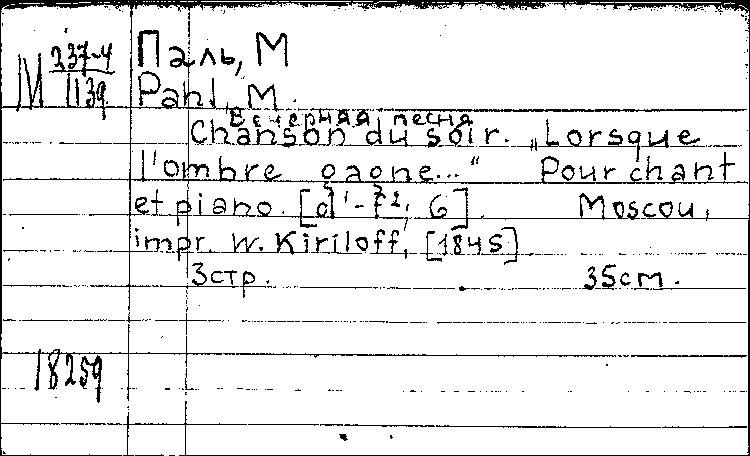 М 237-4
1139
Паль, М
Pahl, M.
Вечерняя песня
Chanson du soir. „Lorsque
l'ombre gagne..." Pour chant
et piano. [d¹-f², G]. Moscou,
impr. W. Kiriloff, [1845]
3 стр. 35 см.
18259